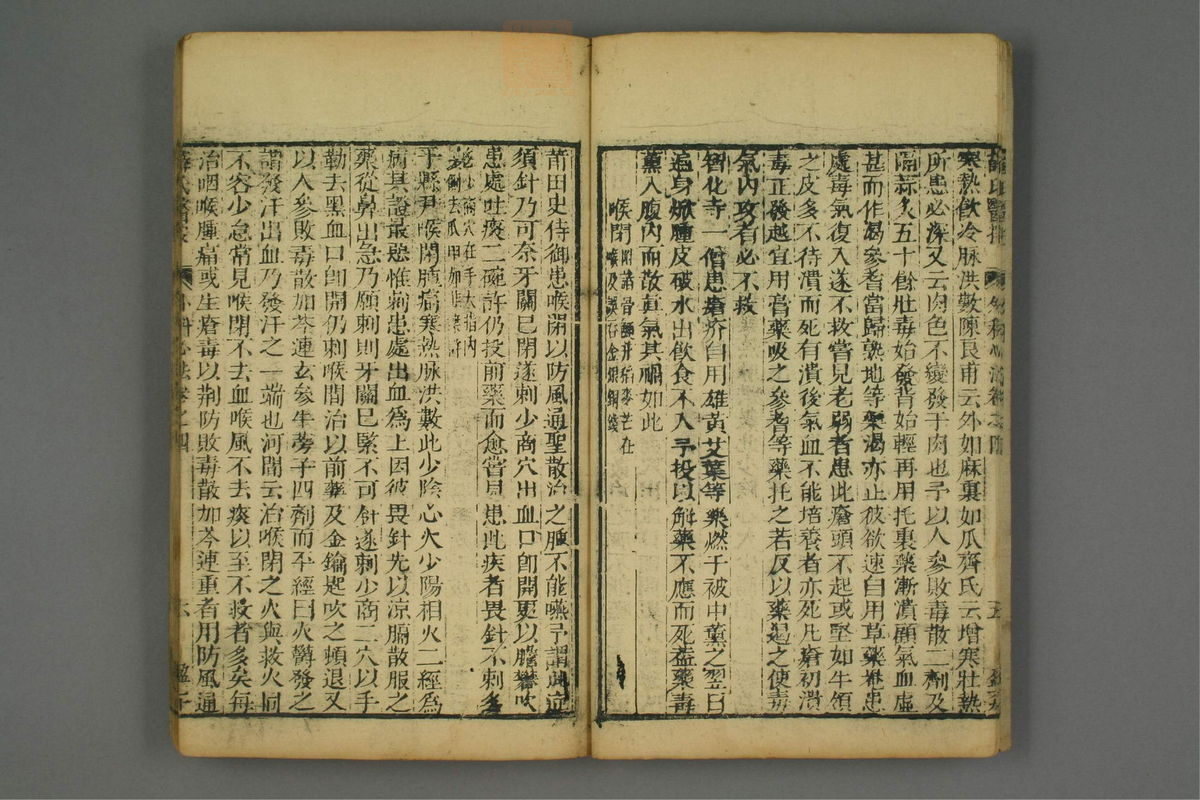 寒熱飲冷脉洪數陳良甫云外如麻裏如瓜齊氏云增寒壯熱
所患必深又云肉色不變發于肉也予以人參敗毒散二劑及
隔蒜灸五十餘壯毒始發背始輕再用托裏藥漸潰顧氣血虛
甚而作渴參芪當歸熟地等藥渴亦止彼欲速自用草藥卷患
處毒氣復入遂不救嘗見老弱者患此瘡頭不起或堅如牛領
之皮多不待潰而死有潰後氣血不能培養者亦死凡瘡初潰
毒正發越宜用膏藥吸之參芪等藥托之若反以藥遏之使毒
氣內攻者必不救
智化寺一僧患瘡疥自用雄黃艾葉等藥燃于被中薰之翌日
遍身焮腫皮破水出飲食不入予投以解藥不應而死蓋藥毒
薰入腹內而散真氣其禍如此
喉閉附諸骨鯁并稻麥芒在喉及誤吞金銀銅錢
莆田史侍御患喉閉以防風通聖散治之腫不能嚥予謂此症
須針乃可奈牙關已閉遂刺少商穴出血口卽開更以膽礬吹
患處吐痰二碗許仍投前藥而愈嘗見患此疾者畏針不刺多
於少商穴在手大指內側去爪甲如韭葉許
于縣尹喉閉腫痛寒熱脉洪數此少陰心火少陽相火二經爲
病其證最惡惟刺患處出血爲上因彼畏針先以涼膈散服之
藥從鼻出急乃願刺則牙關已緊不可針遂刺少商二穴以手
勒去黑血口卽開仍刺喉間治以前藥及金鑰匙吹之頓退又
以人參敗毒散加芩連玄參牛蒡子四劑而平經曰火鬱發之
謂發汗出血乃發汗之一端也河間云治喉閉之火與救火同
不容少怠常見喉閉不去血喉風不去痰以至不救者多矣每
治咽喉腫痛或生瘡毒以荆防敗毒散加芩連重者用防風通